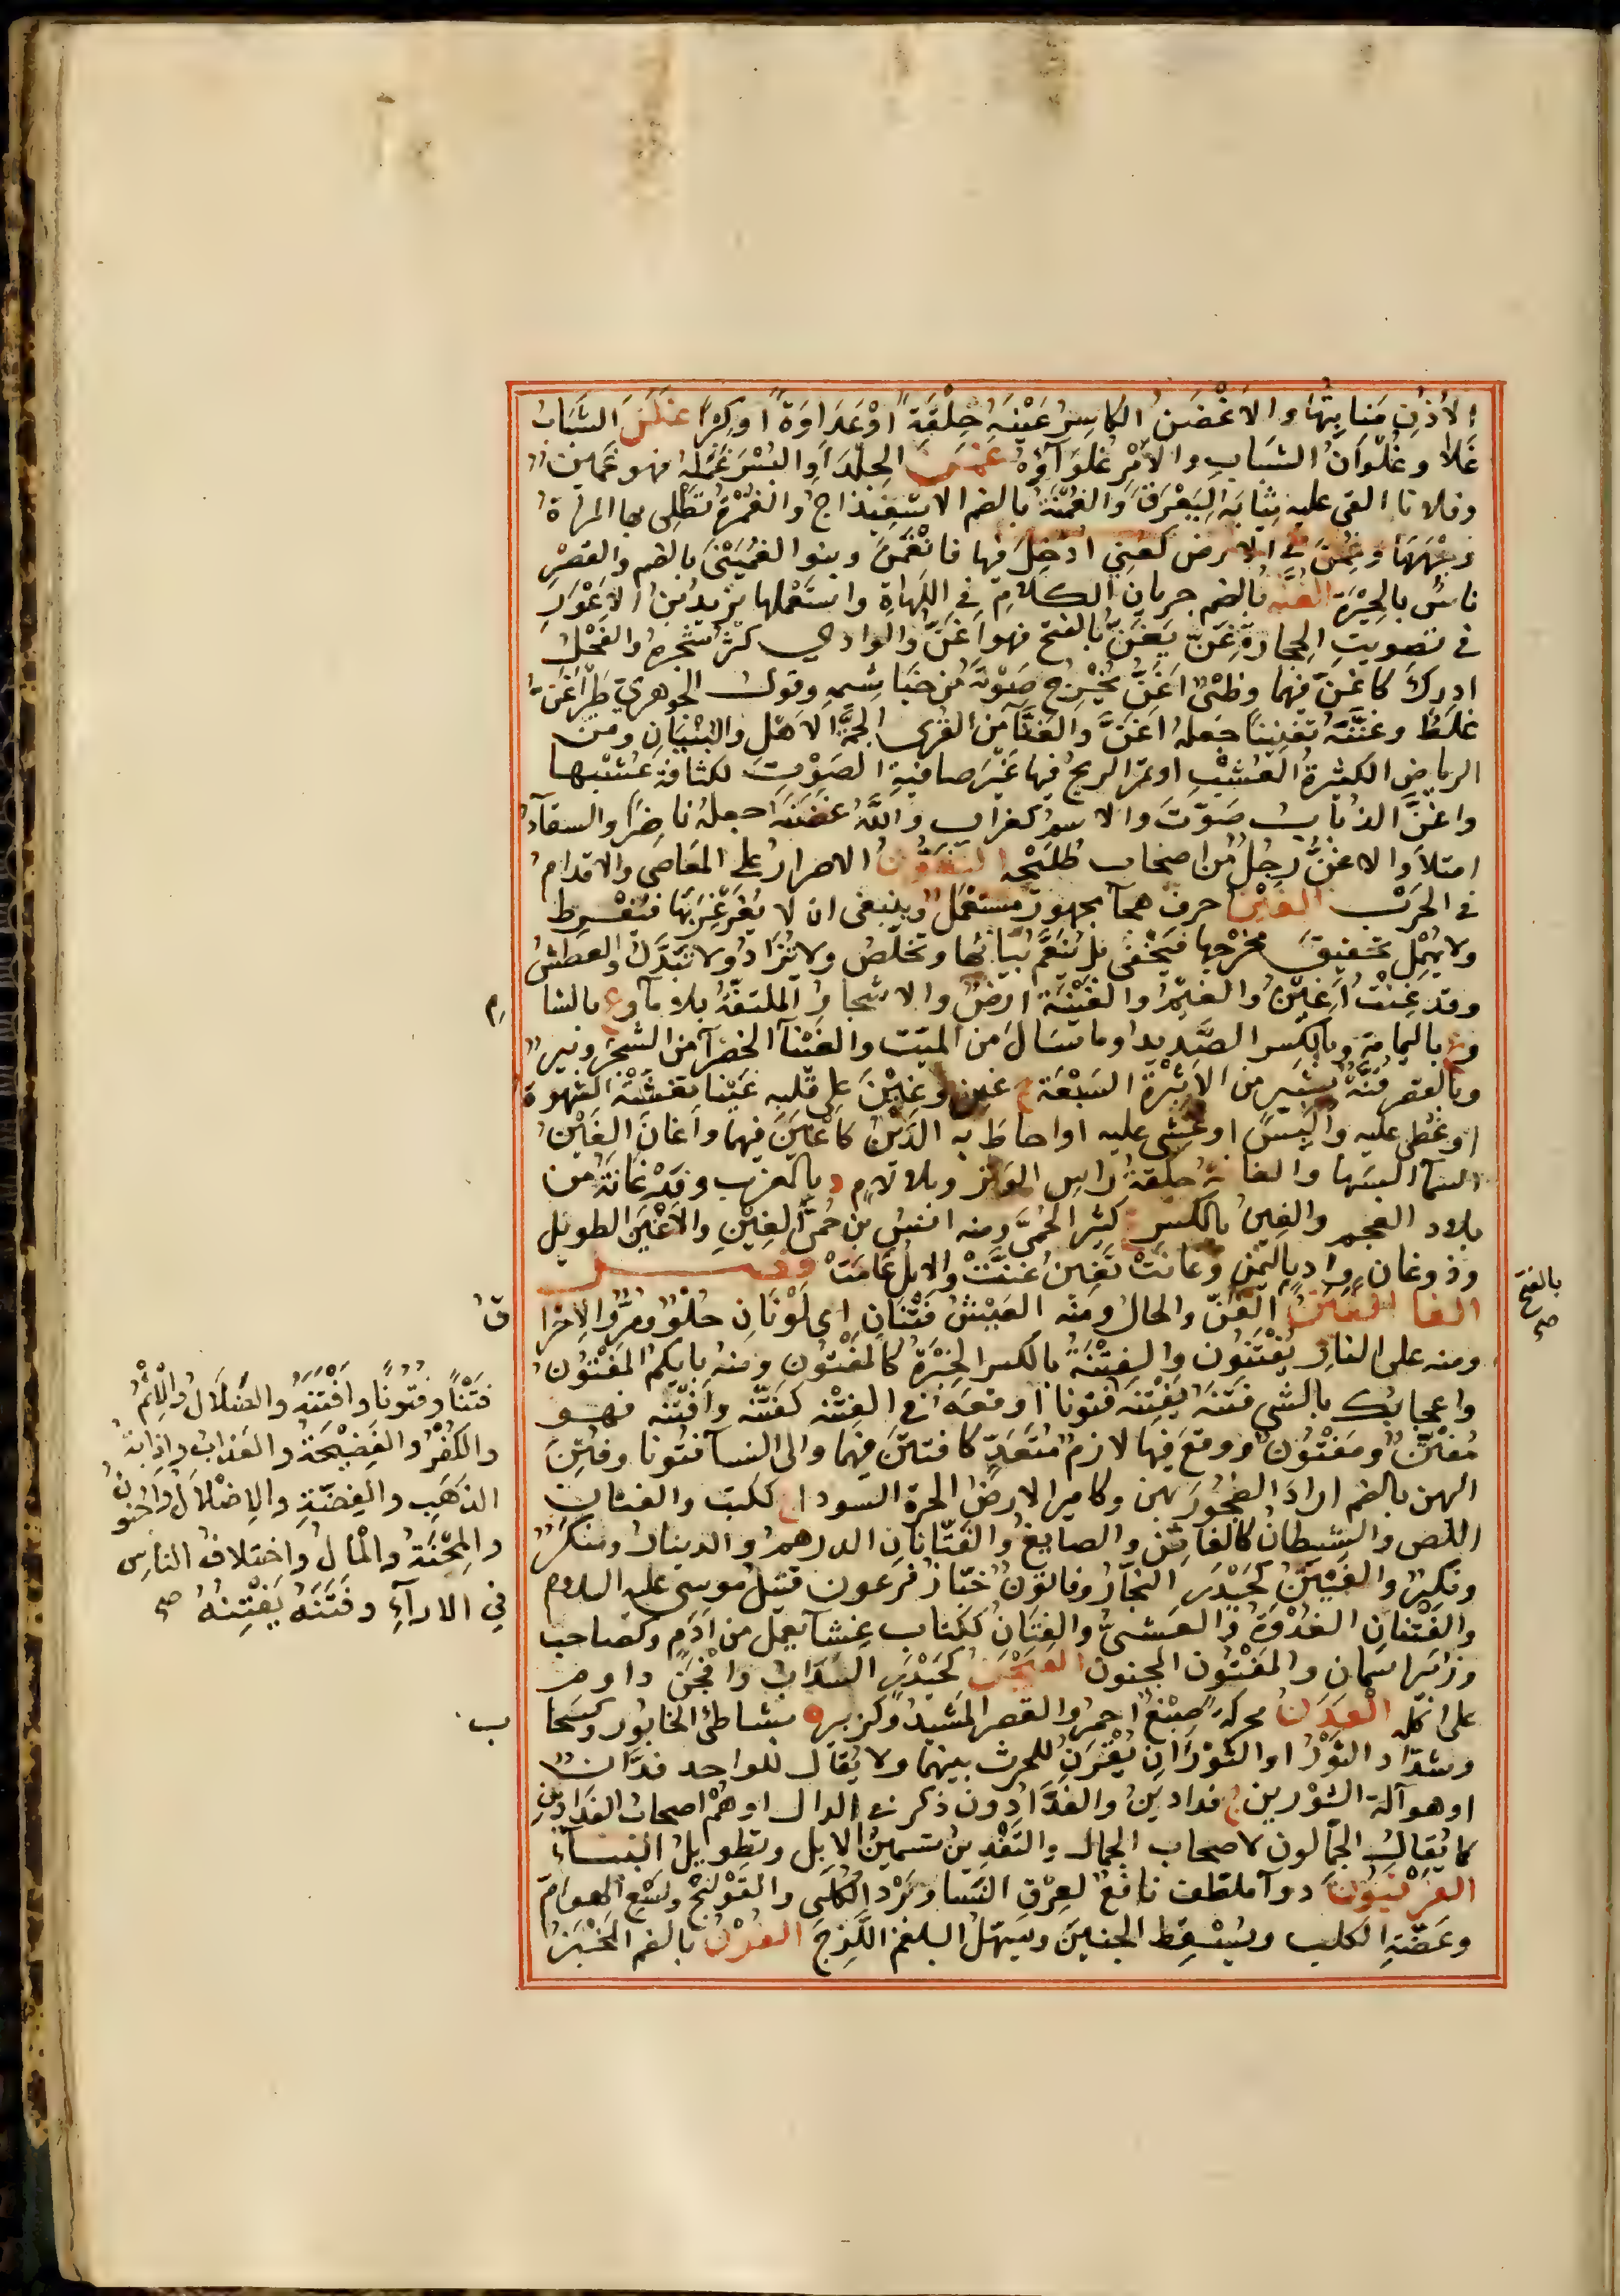 الأُذُنِ مَنابِتُهَا والأَغْضَنُ الكاسِرُ عَيْنَهُ خِلْقَةً أوْ عَدَاوَةً أوكِبْرًا غَلَنَ الشَّبَابُ
غَلَا وغُلُوَانُ الشَبابِ والأَمْرِ غُلَوَآؤُهُ غَمَنَ الجِلْدَ والبُسْرَ غَمَلَهُ فهو غَمِينٌ
وفلانا القى عليه ثِيَابَهُ لِيَعْرَقَ والغُمْنَةُ بالضم الاسْفِيْذاجُ والغُمْرَةُ تَطْلِى بها المرْاةُ
وجْهَهَا وغُمِنَ فى الارض كعُنِي ادخِلَ فيها فانْغَمَنَ وبنو الغُمَيْنَى بالضم والقصْرِ
ناسٌ بالحِيْرَة الغُنَّه بالضم جريان الكلامِ فى اللَّهاةِ واستَعْملها يزيدُ بنُ الأَعْوَرِ
فى تصويتِ الحجارة غَنَّ يَغَنُّ بالفتح فهو اَغَنُّ والوادي كَثُرَ شَجَرهُ والنخلُ
ادركَ كاغَنَّ فيهما وظَبْىٌ اغَنُّ يُخْرِجُ صَوْتَهُ من خَيَاشِيمِه وقول الجوهري طَيْرٌ اَغَنُّ
غَلَطٌ وغَنَّنَهُ تغنِينًا جَعله اغَنَّ والغَنَّآ من القُرى الجمَّة الاهْلِ والبُنْيَانِ ومن
الرياض الكثيرةُ العُشْبِ اوتمرّ الريحُ فيها غَيْرَ صافيةِ الصَوْتِ لكثافة عُشْبِها
واغَنَّ الذُبَابُ صَوَّتَ والاسم كغراب واللّهُ غُصْنَهُ جعلهُ ناضِرًا والسقآءُ
امتلأَ والاغنُّ رَجُلٌ من اصحاب طُلَيْحه التغَوُّنُ الاصرارُ على المَعَاصى والاقدامُ
فى الحَرْب الغَيْنُ حرف هجآ مجهورٌ مستَعْملٌ وينبغى ان لا يُغَرْغِرَ بِهَا فيُفْرِط
ولا يُهْمِل تحقيقَ مَخرْجِها فيَخْفَى بل يُنَعَّمُ بَيَانُها وتخلّصُ ولا يُزَادُ ولا تبدَّلُ والعَطشُ
وقد غِنْتُ أَغِيْنُ والغَيْمُ والغَيْنَةُ ارْضٌ والاشجارُ الملتفّةُ بلا مآ وع بالشا م
وع باليمامة وبالكَسر الصَّديدُ وما سَالَ من الميّت والغَيْنَآ الخضرآ من الشجَرِ وبيرٌ
وبالقصر قُنَّةُ ثَبِير من الاَثْبِرَة السَبْعَة ج غين وغِيْنَ على قَلْبِه غَيْنًا تغشَّتْهُ الشهوةُ
اوغُطى عليه والبِسَ اوغُشِى عليه اواحاطَ به الدَيْنُ كاُغِينَ فيهما واَغانَ الغَيْنُ
السمآ البسَها والغانَةُ حلقةُ راسِ الوَتَر وبلا لامٍ د بالمغرب وقد غانَةُ من
بلاد العجم والغِينُ بالكسرِ ع كثير الحُمَّى ومنه انسُ من حُمَّى الغِيْنِ والأَغْيَنُ الطويل
وذو غان وادٍ باليَمَن وغانَتْ تَغِينُ غَنَّتْ والابلُ غَامَتْ فصل
الفا الفَتْنُ الفَنُّ والحالُ ومنه العَيْشُ فَتْنَانِ اى لَوْنَانِ حُلْوٌ ومُرٌّ والاحْرا قُ
ومنه على النارِ يُفْتَنُون والفِتْنَةُ بالكسر الخِبْرَةُ كالمَفْتُونِ ومنه بايكم المَفْتُونُ
واعجابُكَ بالشي فتَنَهُ يَفْتِنُه فُتُونا اوقعَه فى الفِتْنه كفتّنه وأفْتَنه فهو
مُفْتَنٌ ومَفْتُونٌ ووقع فيها لازمٌ مُتَعَدٍّ كافتَتَنَ فيهما والى النسآ فُتُونا وفُتِنَ
اليهن بالضم ارادَ الفجُورَ بهن وكامير الارضُ الحرة السودا ج ككتب والفتان
اللّص والشيطانُ كالفاتِن والصايغُ والفَتّانَانِ الدرهمُ والدينارُ ومنكَرٌ
ونكِيرٌ والفَيْتَنُ كحَيْدَر النجّارُ وفاتونُ خبّازُ فرعون قتيلُ موسى عليه السلام
والفَتْنَانِ الغُدْوَةُ والعَشىُّ والفِتَانُ ككتاب غِشآ يعملُ من أَدَم وكصاحب
وزائر اسمان والمَفْتُون المجنون الفَيْجَنُ كَحَيْدَر السَذَابُ وافْجَنَ داوم
على اكله الفَدَنُ محركة صِبْغٌ احمرُ والقصر المَشِيدُ وكزبير ه بشاطئ الخابور وكسَحَا ب
وشدّاد الثَوْرُ او الثَوْرَانِ يُقْرَنُ للحرث بينهما ولا يُقال للواحد فدَّانٌ
او هو آلة الثورين ج فدادينُ والفَدَّادون ذكر فى الدال او هُمْ اصحابُ الفدادينِ
كما يُقالُ الجَمّالون لاصحاب الجمال والتَفْدِينُ تسمينُ الابل وتطويل البنآء
الفَرْبَيُون دوآ ملطف نافعٌ لعِرْقِ النَسَا وبَرْد الكُلَى والقَوْلنْج ولَسْعِ الهوامّ
وعَضّةِ الكلب ويُسْقِط الجنينَ ويَسهّلُ البلغم اللَّزِجَ الفُرْنُ بالضم المَخْبَزُ
بالفتح صح
فَتْنًا وفُتُونًا وافْتَنَهُ والضَلَالُ والْإِثْمُ
والكُفْرُ والفَضِيْحَةُ والعَذابُ وإذابَةُ
الذهَبِ والفِضّةِ والاِضْلَالُ والجُنونُ
والمِحْنَةُ والْمَالُ واختلافُ الناسِ
فِي الارآءِ وفَتَنَهُ يَفْتِنُهُ صح